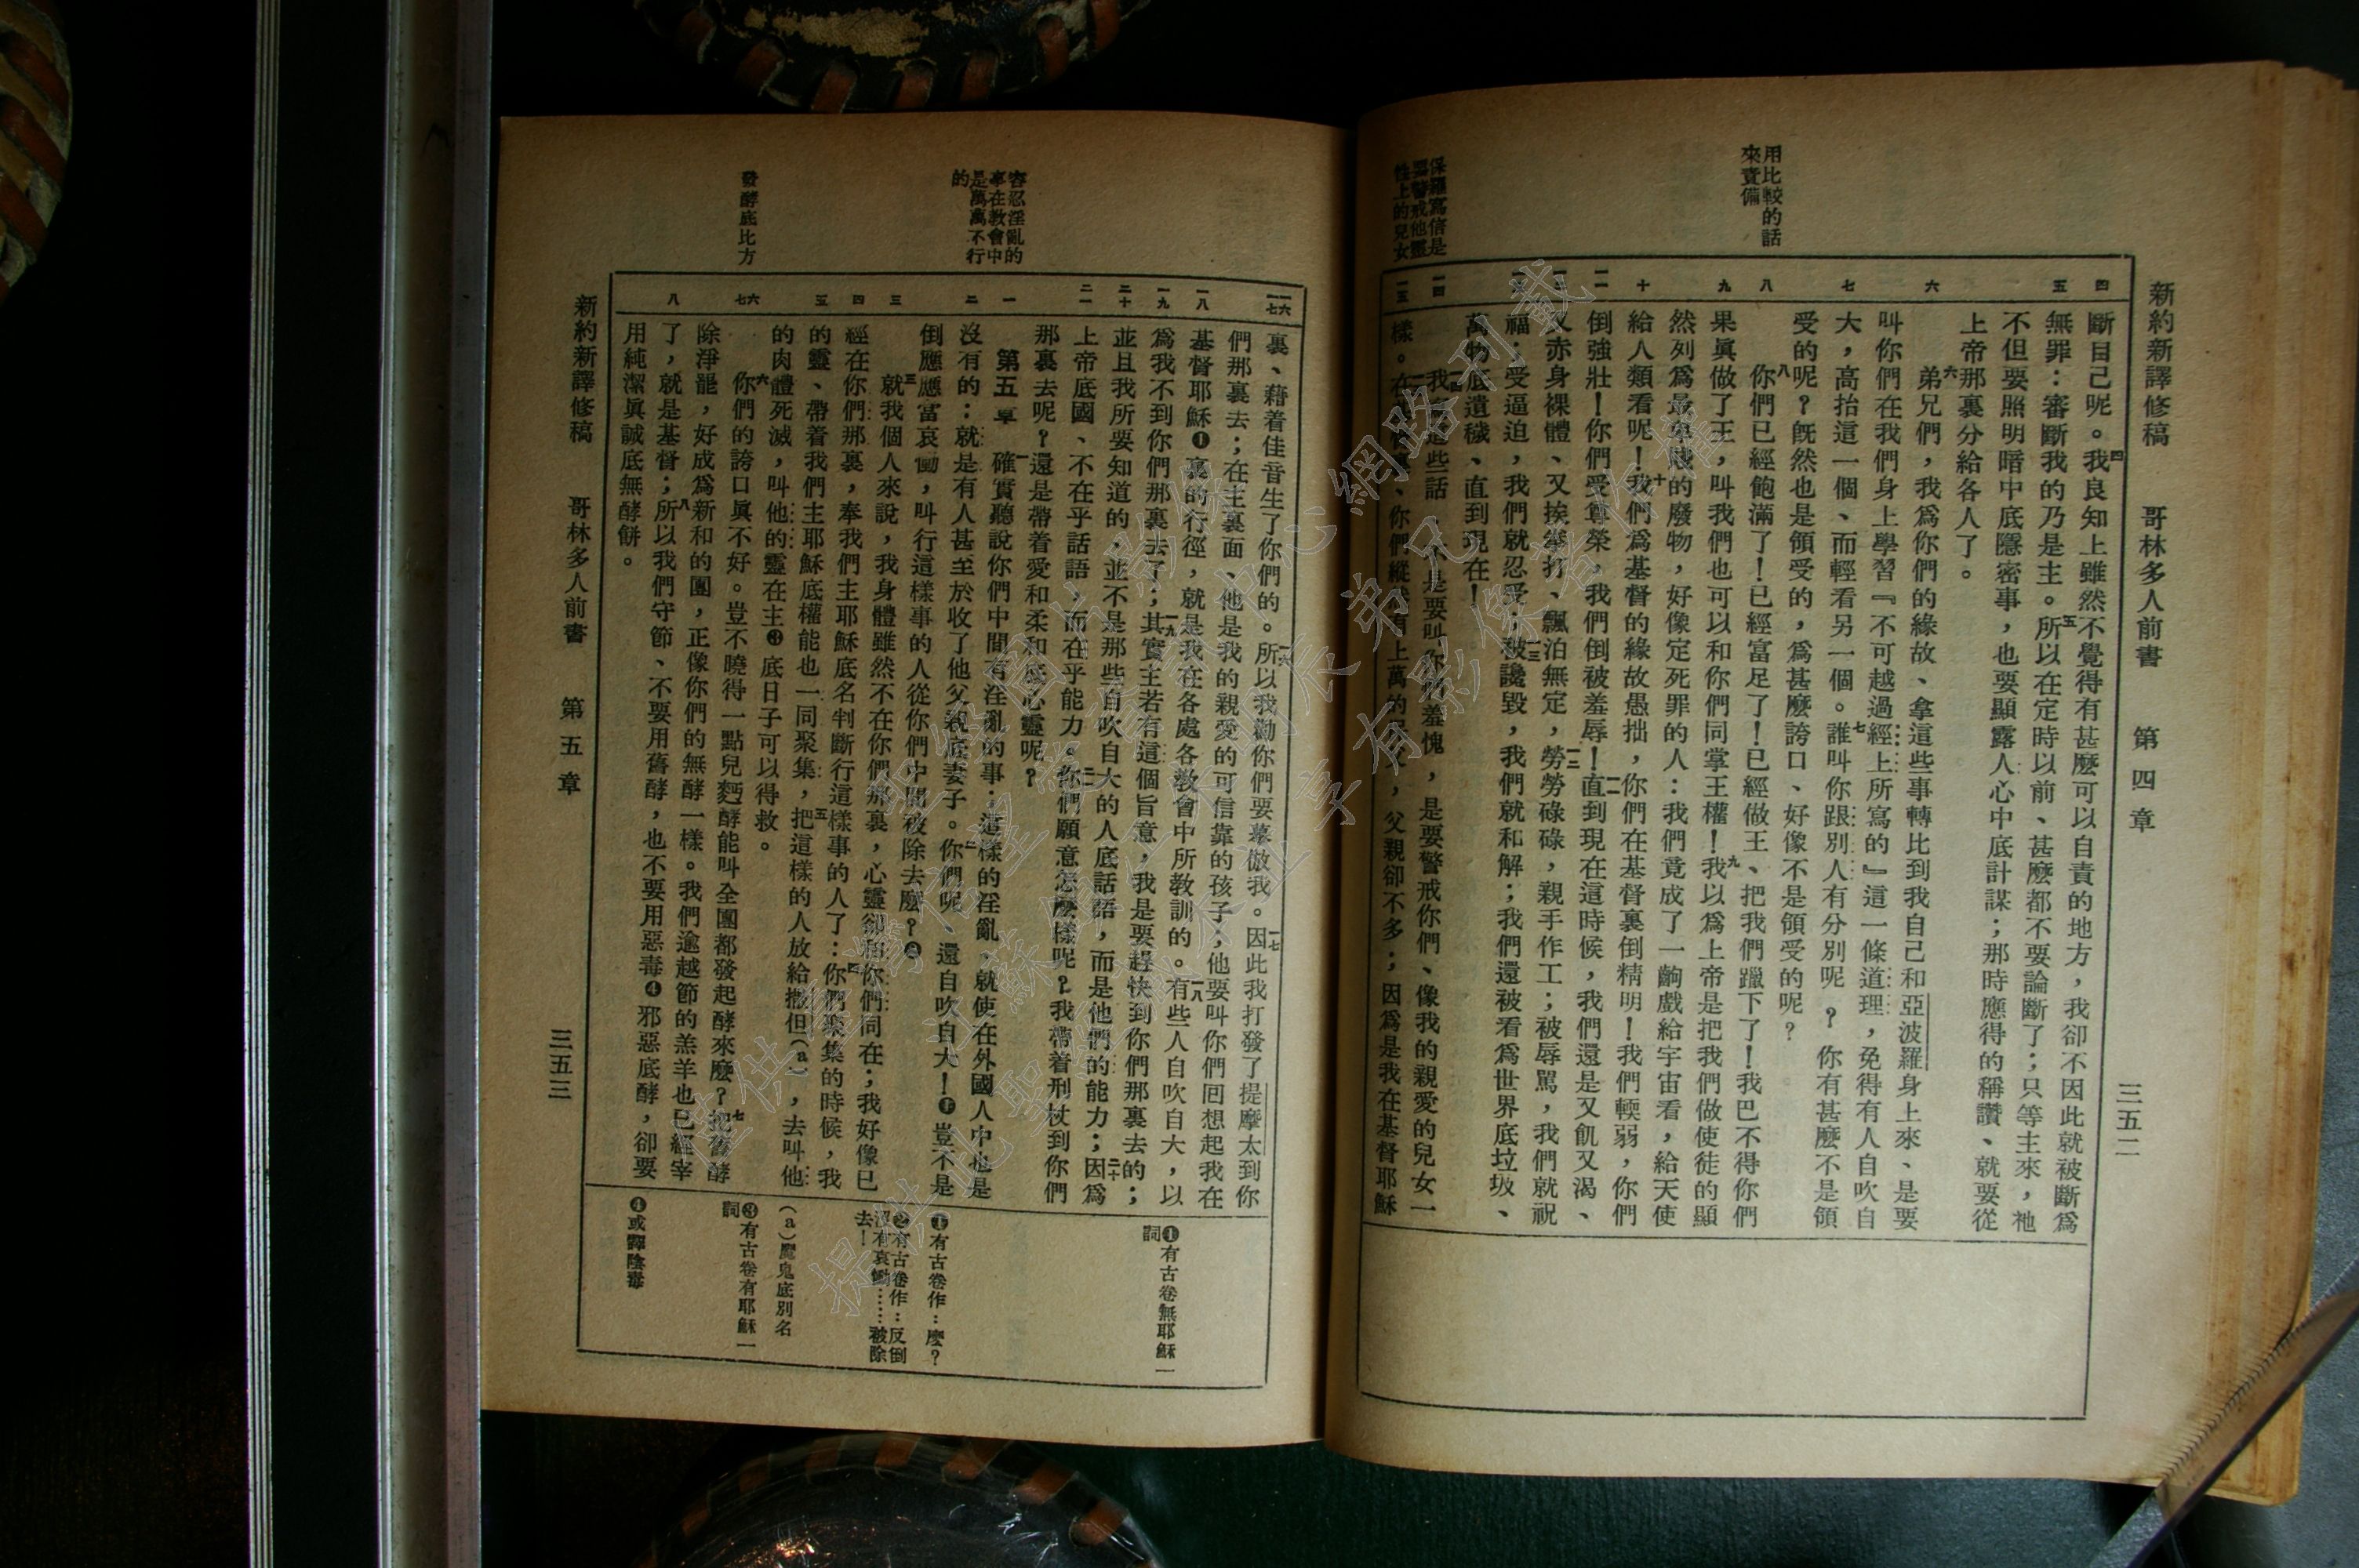 新約新譯修稿　哥林多人前書　第四章　三五二
用比較的話
來責備
保羅寫信是
要警戒他靈
性上的兒女
四
五
六
七
八
九
十
一一
一四
一五
斷自己呢。四我良知上雖然不覺得有甚麼可以自責的地方，我卻不因此就被斷爲
無罪：審斷我的乃是主。五所以在定時以前、甚麼都不要論斷了；只等主來，祂
不但要照明暗中底隱密事，也要顯露人心中底計謀；那時應得的稱讚、就要從
上帝那裏分給各人了。
六弟兄們，我爲你們的緣故、拿這些事轉比到我自己和亞波羅身上來、是要
叫你們在我們身上學習『不可越過經上所寫的』這一條道理，免得有人自吹自
大，高抬這一個、而輕看另一個。七誰叫你跟別人有分別呢？你有甚麼不是領
受的呢？既然也是領受的，爲甚麼誇口、好像不是領受的呢？
八你們已經飽滿了！已經富足了！已經做王、把我們蹓下了！我巴不得你們
果眞做了王，叫我們也可以和你們同掌王權！九我以爲上帝是把我們做使徒的顯
然列爲最卑賤的廢物，好像定死罪的人：我們竟成了一齣戲給宇宙看，給天使
給人類看呢！十我們爲基督的緣故愚拙，你們在基督裏倒精明！我們輭弱，你們
倒強壯！你們受尊榮，我們倒被羞辱！一一直到現在這時候，我們還是又飢又渴、
又赤身裸體、又挨拳打、飄泊無定，一二勞勞碌碌，親手作工；被辱罵，我們就祝
福；受逼迫，我們就忍受；一三被讒毀，我們就和解；我們還被看爲世界底垃圾、
萬物底遺穢、直到現在！
一四我寫這些話、不是要叫你們羞愧，是要警戒你們、像我的親愛的兒女一
樣。在基督裏、你們縱然有上萬的師父，父親卻不多；因爲是我在基督耶穌
容忍淫亂的
事在教會中
是萬萬不行
的
發酵底比方
一六
一七
一八
一九
二十
二一
一
二
三
四
五
六
七
八
裏、藉着佳音生了你們的。一六所以我勸你們要摹倣我。一七因此我打發了提摩太到你
們那裏去；在主裏面、他是我的親愛的可信靠的孩子；他要叫你們回想起我在
基督耶穌❶裏的行徑，就是我在各處各教會中所教訓的。一八有些人自吹自大，以
爲我不到你們那裏去了；一九其實主若有這個旨意，我是要趕快到你們那裏去的；
並且我所要知道的，並不是那些自吹自大的人底話語，而是他們的能力；二十因爲
上帝底國、不在乎話語，而在乎能力。二一你們願意怎麼樣呢？我帶着刑杖到你們
那裏去呢？還是帶着愛和柔和底心靈呢？
第五章　一確實聽說你們中間有淫亂的事；這樣的淫亂，就使在外國人中也是
沒有的：就是有人甚至於收了他父親底妻子。二你們呢、還自吹自大！❶豈不是
倒應應當哀慟，叫行這樣事的人從你們中間被除去麼？❷
三就我個人來說，我身體雖然不在你們那裏，心靈卻和你們同在；我好像已
經在你們那裏，奉我們主耶穌底名判斷行這樣事的人了：四你們聚集的時候，我
的靈、帶着我們主耶穌底權能也一同聚集，五把這樣的人放給撒但(a)，去叫他
的肉體死滅，叫他的靈在主❸底日子可以得救。
六你們的誇口眞不好。豈不曉得一點兒麪酵能叫全團都發起酵來麼？七把舊酵
除淨罷，好成爲新和的團，正像你們的無酵一樣。我們逾越節的羔羊也已經宰
了，就是基督；八所以我們守節、不要用舊酵，也不要用惡毒❹邪惡底酵，卻要
用純潔眞誠底無酵餅。
❶有古卷無耶穌一
詞
❶有古卷作：麼？
❷有古卷作：反倒
沒有哀慟……被除
去！
(a)魔鬼底別名
❸有古卷有耶穌一
詞
❹或譯陰毒
新約新譯修稿　哥林多人前書　第五章　三五三